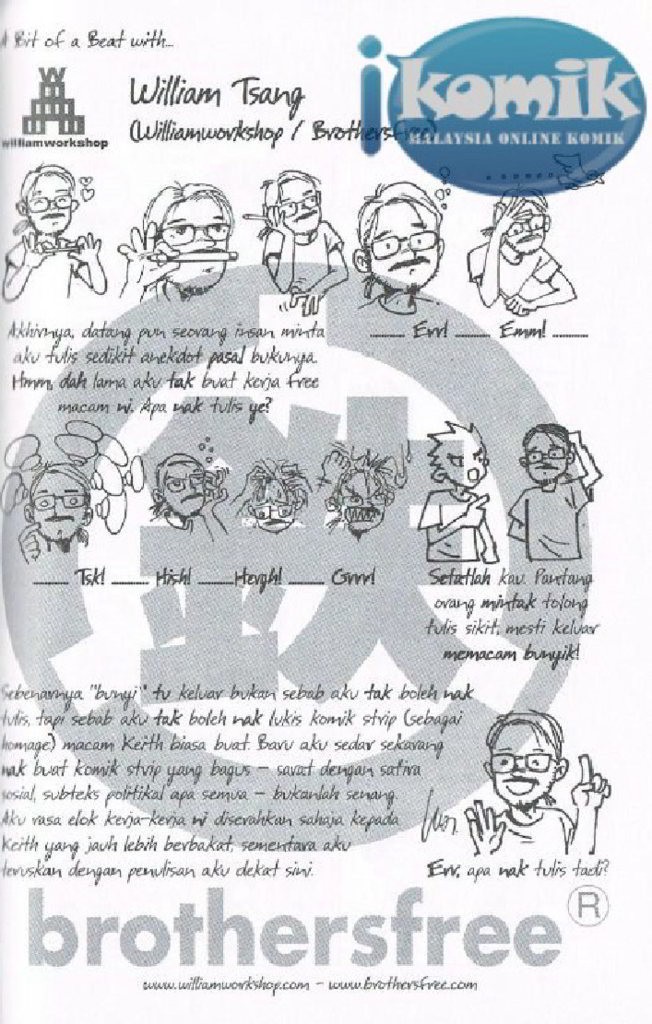 A Bit of a Beat with...
williamworkshop
William Tsang
(Williamworkshop / Brothersfree)
ikomik
MALAYSIA ONLINE KOMIK
Akhirnya, datang pun seorang insan minta
aku tulis sedikit anekdot pasal bukunya.
Hmm, dah lama aku tak buat kerja free
macam ni. Apa nak tulis ye?
...... Err! ...... Emm! ......
...... Tsk! ...... Hish! ...... Hergh! ...... Grrr!
Sefatlah kau. Pantang
orang mintak tolong
tulis sikit, mesti keluar
memacam bunyik!
Sebenarnya "bunyi" tu keluar bukan sebab aku tak boleh nak
tulis, tapi sebab aku tak boleh nak lukis komik strip (sebagai
homage) macam Keith biasa buat. Baru aku sedar sekarang
nak buat komik strip yang bagus - sarat dengan satira
sosial, subteks politikal apa semua - bukanlah senang.
Aku rasa elok kerja-kerja ni diserahkan sahaja kepada
Keith yang jauh lebih berbakat, sementara aku
teruskan dengan penulisan aku dekat sini.
Err, apa nak tulis tadi?
brothersfree ®
www.williamworkshop.com - www.brothersfree.com